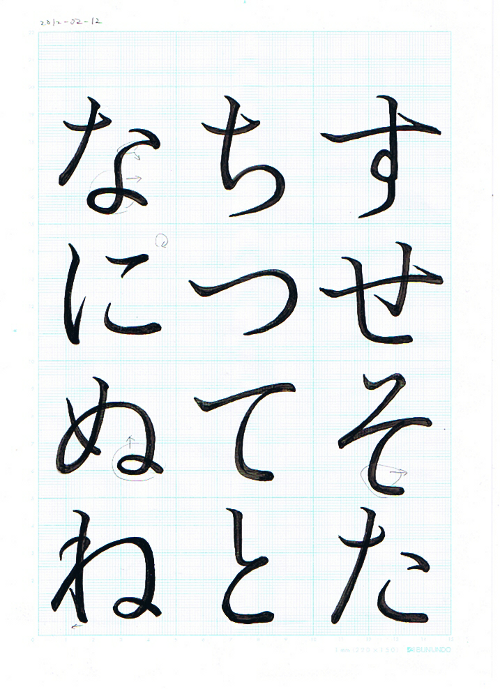 2012-02-12
すせそた
ちつてと
なにぬね